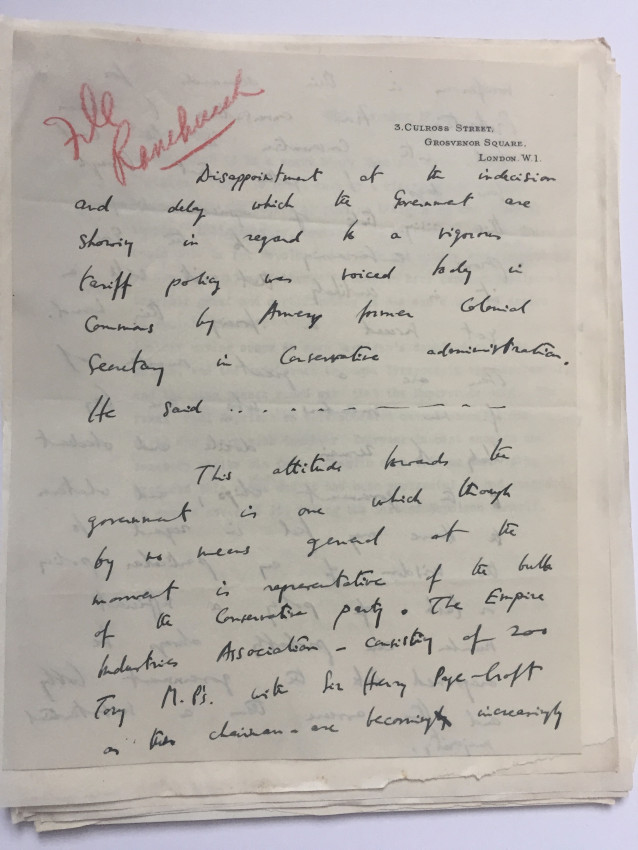 File
3. CULROSS STREET,
GROSVENOR SQUARE,
LONDON. W.1.
Disappointment at the indecision
and delay which the Government are
showing in regard to a vigorous
tariff policy was voiced today in
Commons by Amery former Colonial
Secretary in Conservative administration.
He said .. . . - . - — — — —
This attitude towards the
government is one which though
by no means general at the
moment is representative of the bulk
of the Conservative party. The Empire
Industries Association - consisting of 200
Tory M.P's. with Sir Henry Page-Croft
as their chairman - are becoming increasingly